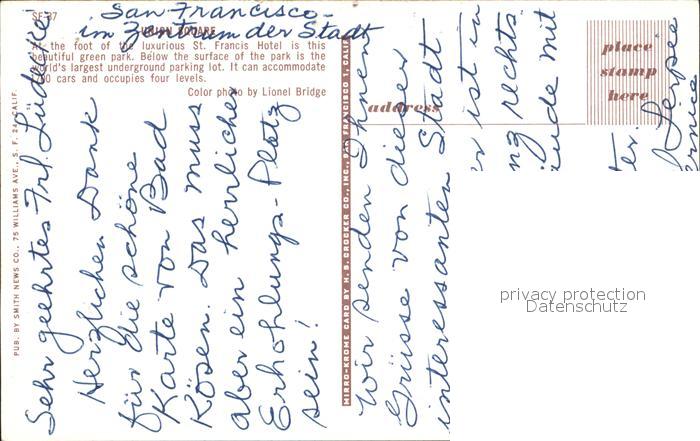 San Francisco-
im Zentrum der Stadt
SF-37
UNION SQUARE
At the foot of the luxurious St. Francis Hotel is this
beautiful green park. Below the surface of the park is the
world's largest underground parking lot. It can accommodate
cars and occupies four levels.
Color photo by Lionel Bridge
PUB. BY SMITH NEWS CO., 75 WILLIAMS AVE., S. F. 24, CALIF.
Sehr geehrtes Frl. Lüdecke!
Herzlichen Dank
für die schöne
Karte von Bad
Kösen. Das muss
aber ein herrlicher
Erhohlungs-Platz
sein!
MIRRO-KROME CARD BY H. S. CROCKER CO., INC., SAN FRANCISCO 1, CALIF.
Wir senden Ihnen
Grüsse von dieser
interessanten Stadt
r ist in
ng rechts
ude mit
ter.
address
place
stamp
here
privacy protection
Datenschutz